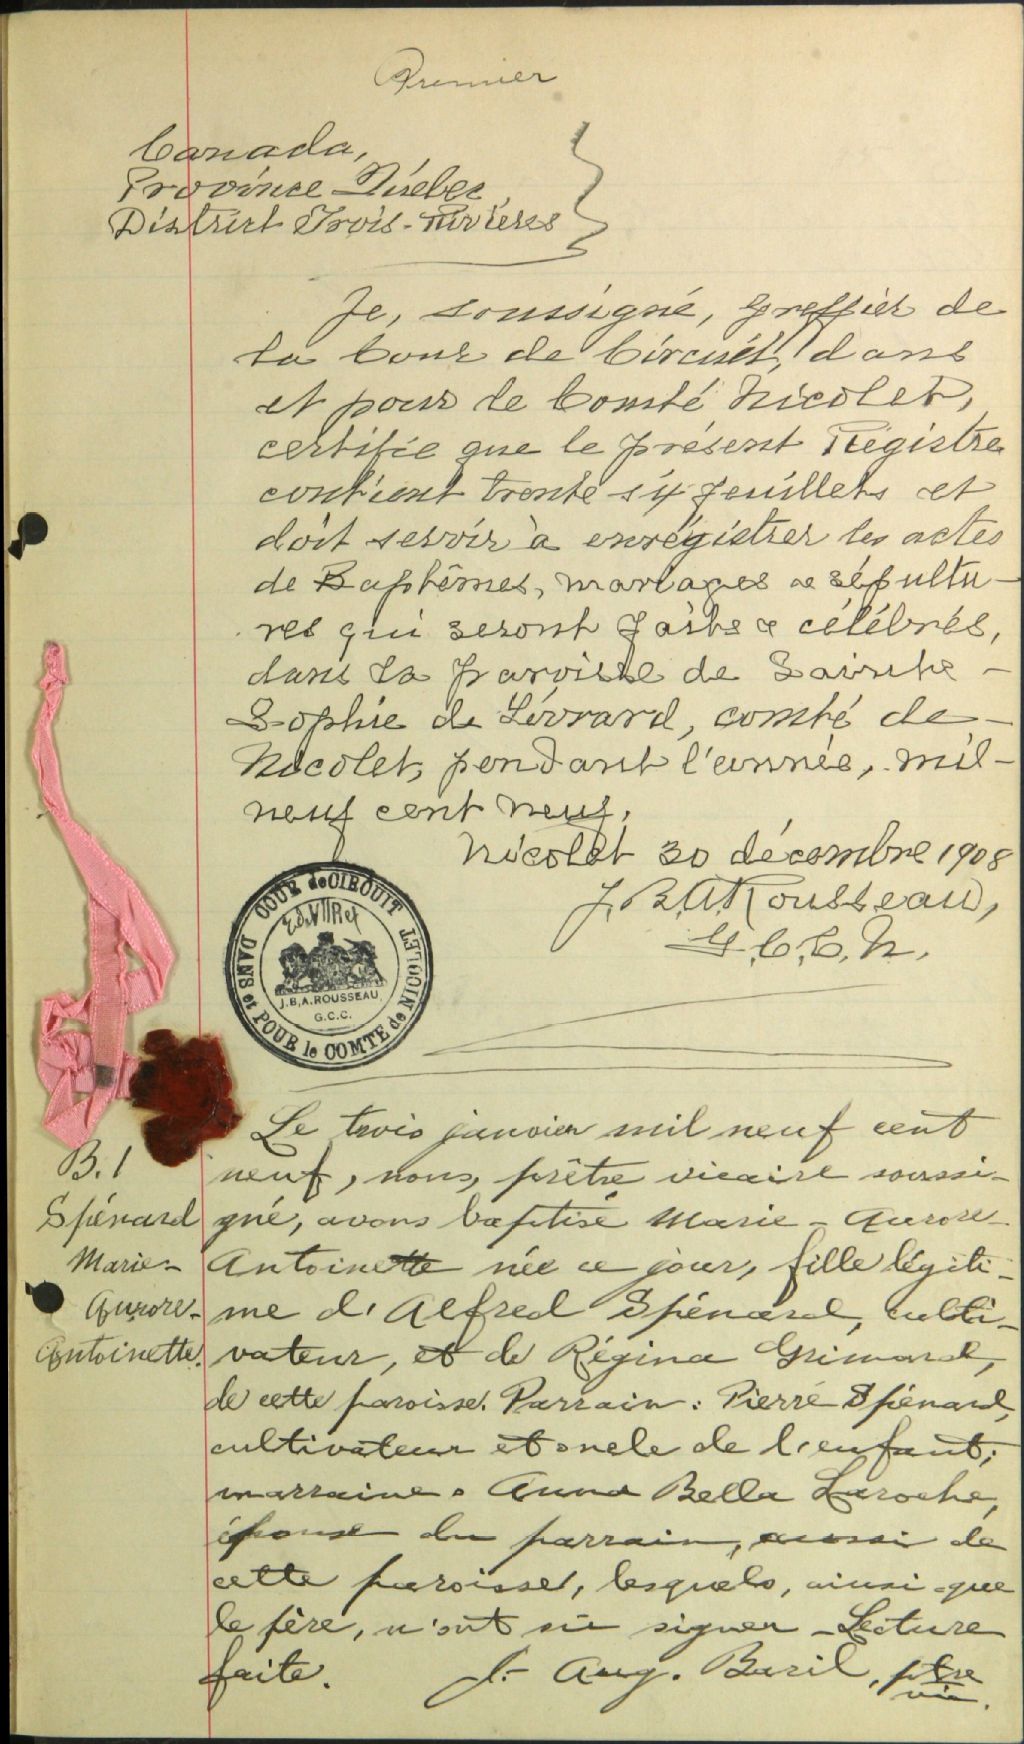 Premier
Canada,
Province Québec,
District Trois-Rivières
Je, soussigné, greffier de
la Cour de Circuit, dans
et pour le Comté Nicolet,
certifie que le présent Régistre
contient trente six feuillets et
doit servir à enrégistrer les actes
de Baptêmes, mariages & sépultu-
res qui seront faits & célébrés,
dans la paroisse de Sainte-
Sophie de Lévrard, comté de-
Nicolet, pendant l'année, mil-
neuf cent neuf.
Nicolet 30 décembre 1908
J.B.A Rousseau,
G.C.C.N.
COUR de CIRCUIT
DANS et POUR le COMTE de NICOLET
Ed. VII Rex
J.B.A. ROUSSEAU,
G.C.C.
B.1
Spénard
Marie-
Aurore-
Antoinette.
Le trois janvier mil neuf cent
neuf, nous, prêtre vicaire soussi-
gné, avons baptisé Marie-Aurore-
Antoinette née ce jour, fille légiti-
me d'Alfred Spénard, culti-
vateur, et de Régina Grimard,
de cette paroisse. Parrain: Pierre Spénard,
cultivateur et oncle de l'enfant;
marraine: Anna Bella Laroche,
épouse du parrain, aussi de
cette paroisse, lesquels, ainsi que
le père, n'ont su signer - Lecture
faite. J.- Aug. Baril, ptre
vic.